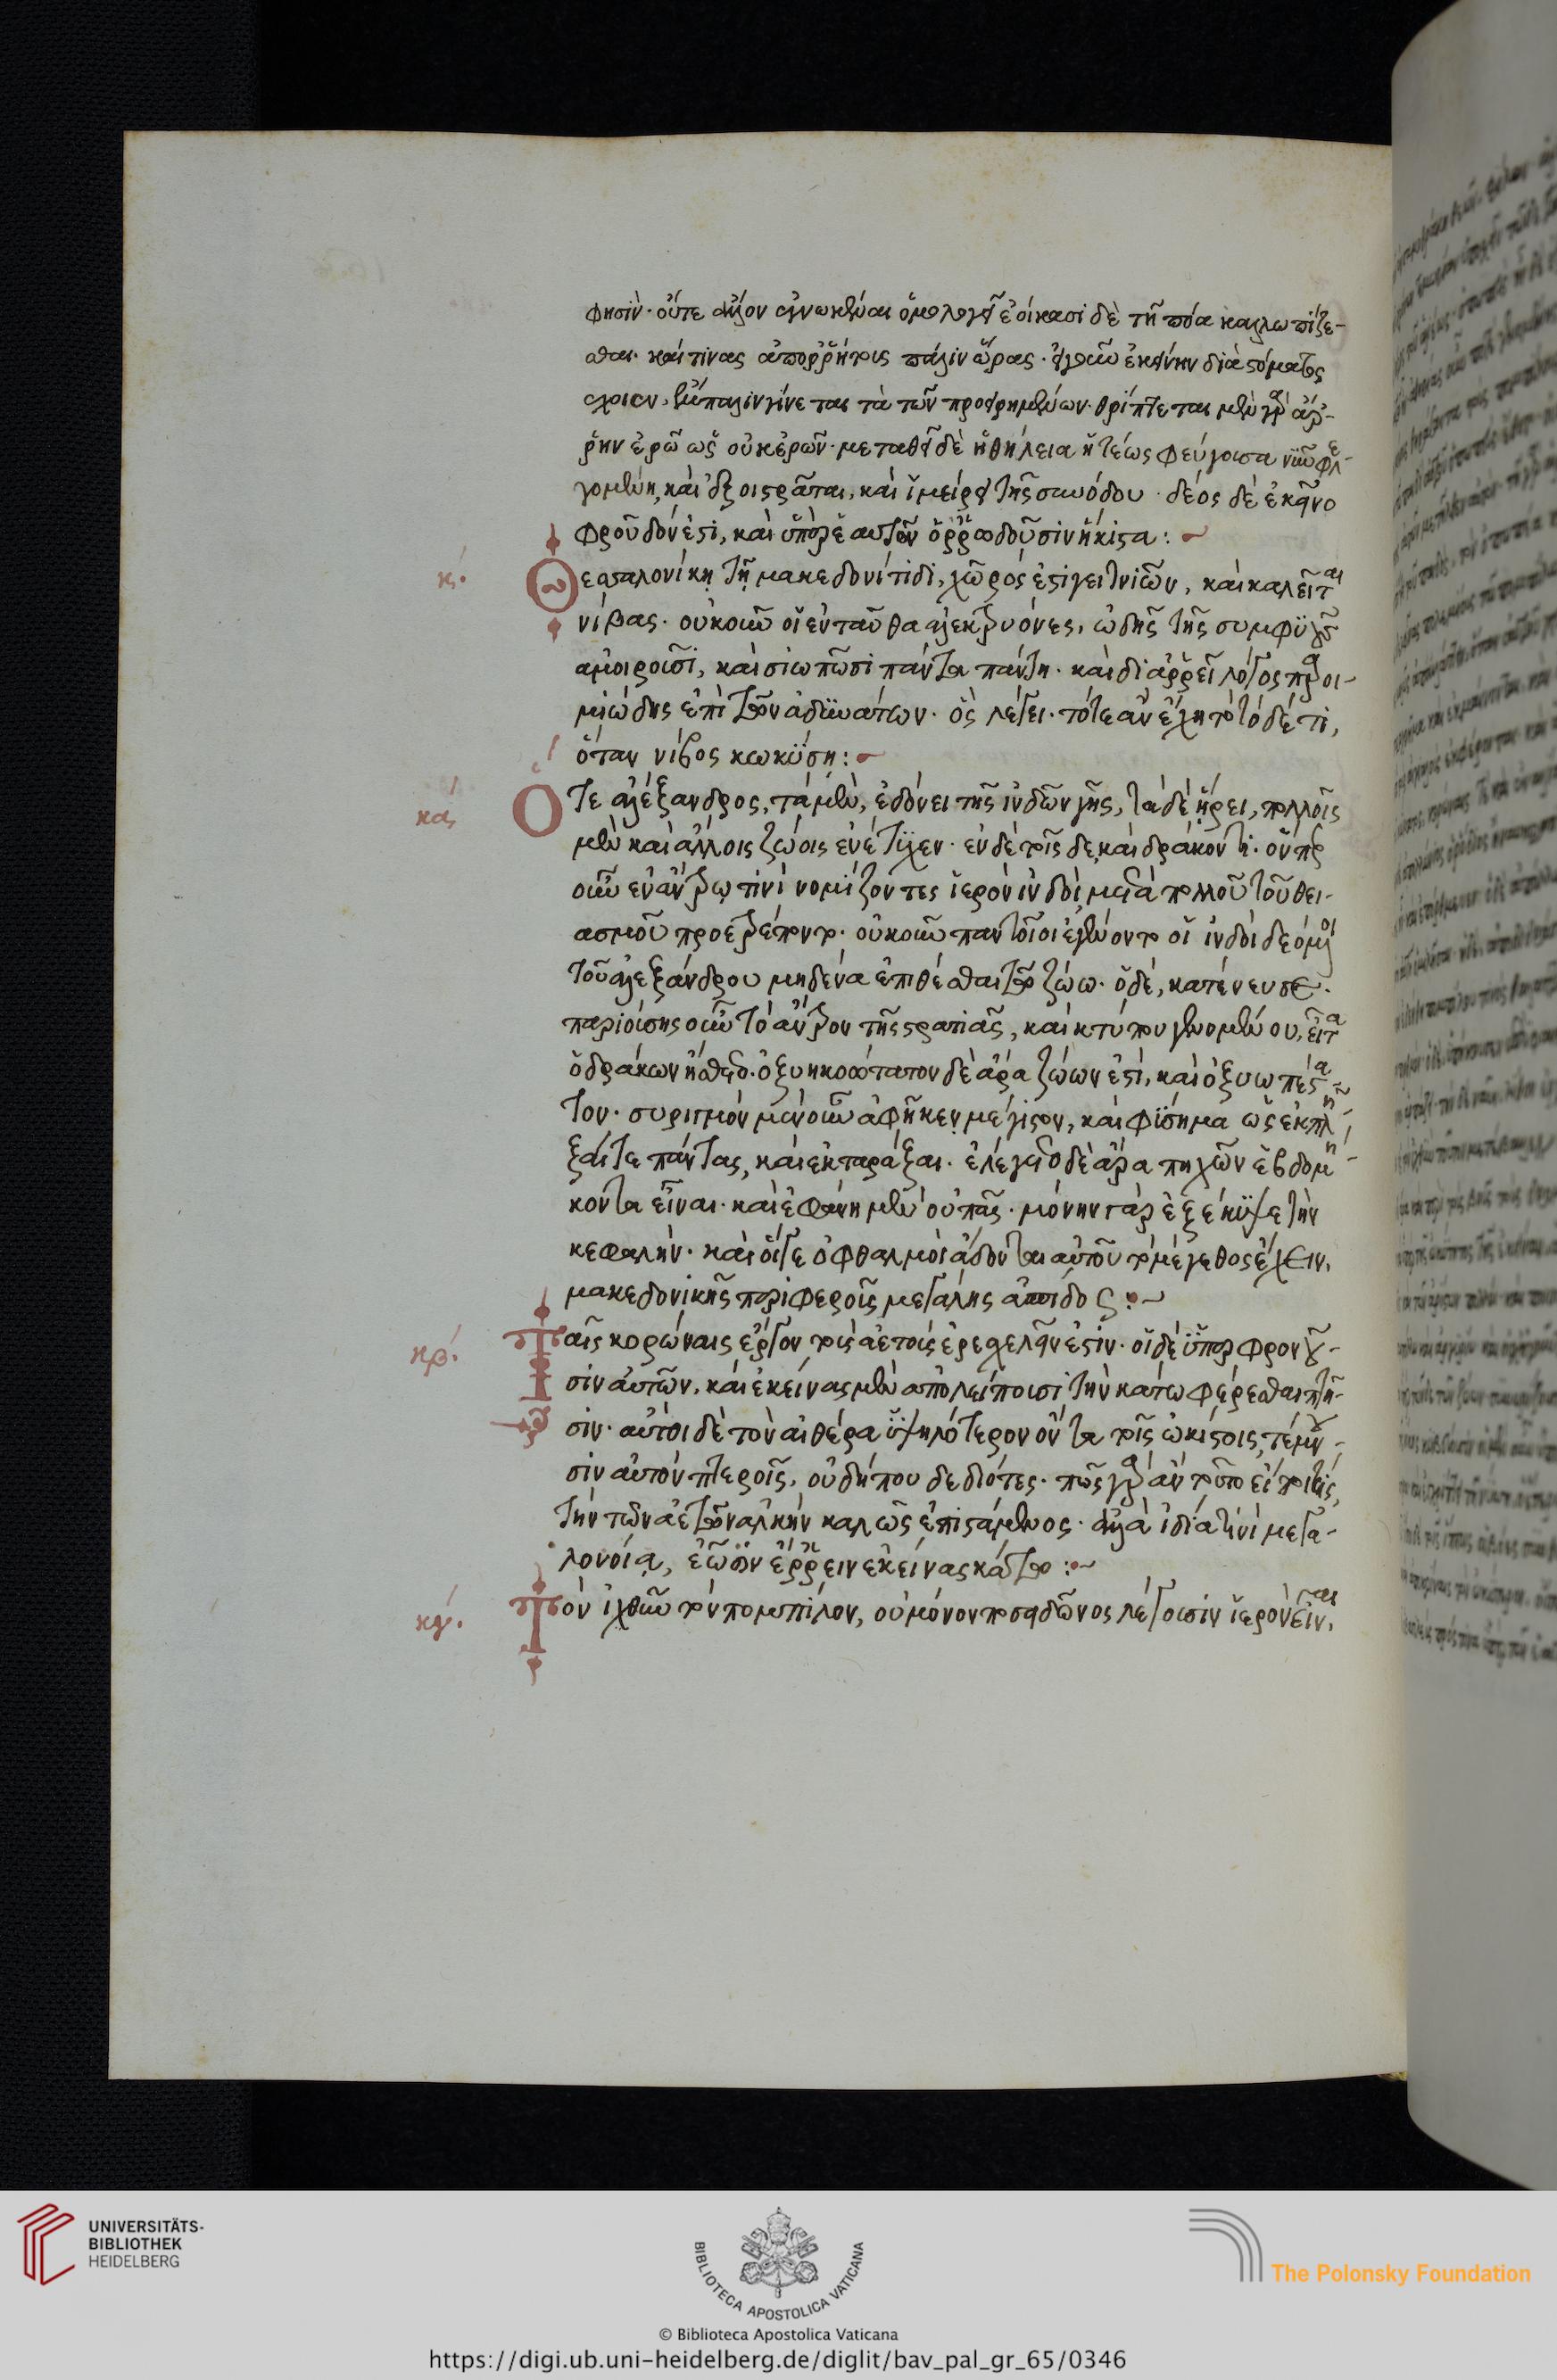 φησίν· οὔτε ἄλλον ἀγνωκέναι ὁμολογεῖ ἐοίκασι δὲ τῇ πόα καλλωπίζε-
σθαι. καί τινας ἀπορρήτοις πάλιν ὥρας. ἐκείνην διὰ στόματος
σχοῖεν, ἔμπαλιν γίνεται τὰ τῶν προειρημένων. θρύπτεται μὲν γὰρ ὁ ἄρ-
ρην ἐρῶ ὡς οὐκ ἐρῶν· μεταθεῖ δὲ ἡ θήλεια ἡ τέως φεύγουσα νῦν φλε-
γομένη, καὶ ἐξοιστρᾶται, καὶ ἱμείρει τῆς συνόδου· δέος δὲ ἐκεῖνο
φροῦδόν ἐστι, καὶ ὑπὲρ ἑαυτῶν ὀρρωδοῦσιν ἥκιστα:
κ. Θεσσαλονίκῃ τῇ μακεδονίτιδι, χῶρός ἐστι γειτνιῶν, καὶ καλεῖται
νίβας. οὐκοῦν οἱ ἐνταῦθα ἀλεκτρυόνες, ᾠδῆς τῆς συμφυοῦς
ἀμοιροῦσι, καὶ σιωπῶσι πάντα πάντη. καὶ διαρρεῖ λόγος παροι-
μιώδης ἐπὶ τῶν ἀδυνάτων. ὃς λέγει. τότε ἂν ἔχῃ τὸ τόδέ τι,
ὅταν νίβος κωκύσῃ:
κα Ὅτε ἀλέξανδρος, τὰ μὲν, ἐδόνει τῆς ἰνδῶν γῆς, τὰ δὲ ᾕρει, πολλοῖς
μὲν καὶ ἄλλοις ζώοις ἐνέτυχεν. ἐν δὲ τοῖς δὲ καὶ δράκοντι. ὅνπερ
οὖν ἐν ἄντρῳ τινὶ νομίζοντες ἱερὸν ἰνδοὶ μετὰ πολλοῦ τοῦ θει-
ασμοῦ προσετρέποντο. οὐκοῦν παντοῖοι ἐγένοντο οἱ ἰνδοὶ δεόμενοι
τοῦ ἀλεξάνδρου μηδένα ἐπιθέσθαι τῷ ζώῳ. ὁ δὲ, κατένευσε.
παριούσης οὖν τὸ ἄντρον τῆς στρατιᾶς, καὶ κτύπου γενομένου, εἶτα
ὁ δράκων ᾔσθετο. ὀξυηκοώτατον δὲ ἄρα ζώων ἐστί, καὶ ὀξυωπέστα-
τον. συριγμὸν μὲν οὖν ἀφῆκεν μέγιστον, καὶ φύσημα ὡς ἐκπλῆ-
ξαί τε πάντας, καὶ ἐκταράξαι. ἐλέγετο δὲ ἄρα πηχῶν ἑβδομή-
κοντα εἶναι. καὶ ἐφάνη μὲν οὐ πᾶς. μόνην γὰρ ἐξέκυψε τὴν
κεφαλήν. καὶ οἵ γε ὀφθαλμοὶ ᾄδονται αὐτοῦ τὸ μέγεθος ἔχειν,
μακεδονικῆς περιφεροῦς μεγάλης ἀσπίδος:
κβ. Ταῖς κορώναις ἔργον τοὺς ἀετοὺς ἐρεσχελεῖν ἐστίν. οἱ δὲ ὑπερφρονοῦ-
σιν αὐτῶν. καὶ ἐκείνας μὲν ἀπολείπουσι τὴν κάτω φέρεσθαι πτῆ-
σιν. αὐτοὶ δὲ τὸν αἰθέρα ὑψηλότερον ὄντα τοῖς ὠκίστοις τέμνου-
σιν αὐτὸν πτεροῖς. οὐ δήπου δεδιότες. πῶς γὰρ ἂν τοῦτο εἴποι τίς,
τὴν τῶν ἀετῶν ἀλκὴν καλῶς ἐπιστάμενος. ἀλλὰ ἰδίᾳ τινὶ μεγα-
λονοίᾳ, ἐῶσιν ἔρρειν ἐκείνας κάτω:
κγ. Τὸν ἰχθῦν τὸν πομπίλον, οὐ μόνον ποσειδῶνος λέγουσιν ἱερὸν εἶναι,
UNIVERSITÄTS-
BIBLIOTHEK
HEIDELBERG
BIBLIOTECA APOSTOLICA VATICANA
The Polonsky Foundation
© Biblioteca Apostolica Vaticana
https://digi.ub.uni-heidelberg.de/diglit/bav_pal_gr_65/0346